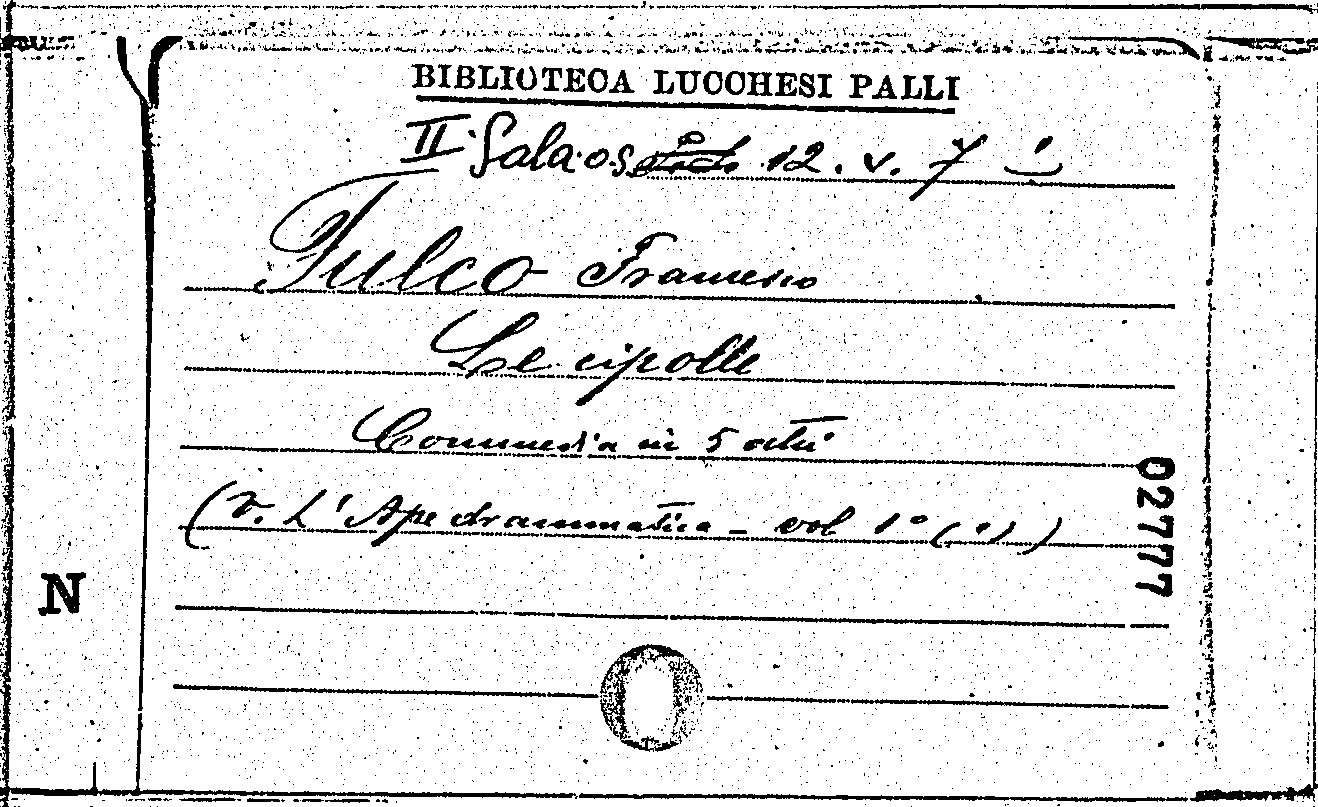 BIBLIOTECA LUCCHESI PALLI
II Sala os 12. v. 7
Fulco Francesco
Le cipolle
Commedia in 5 atti
(V. L'Ape drammatica - vol 1° (1) )
02777
N